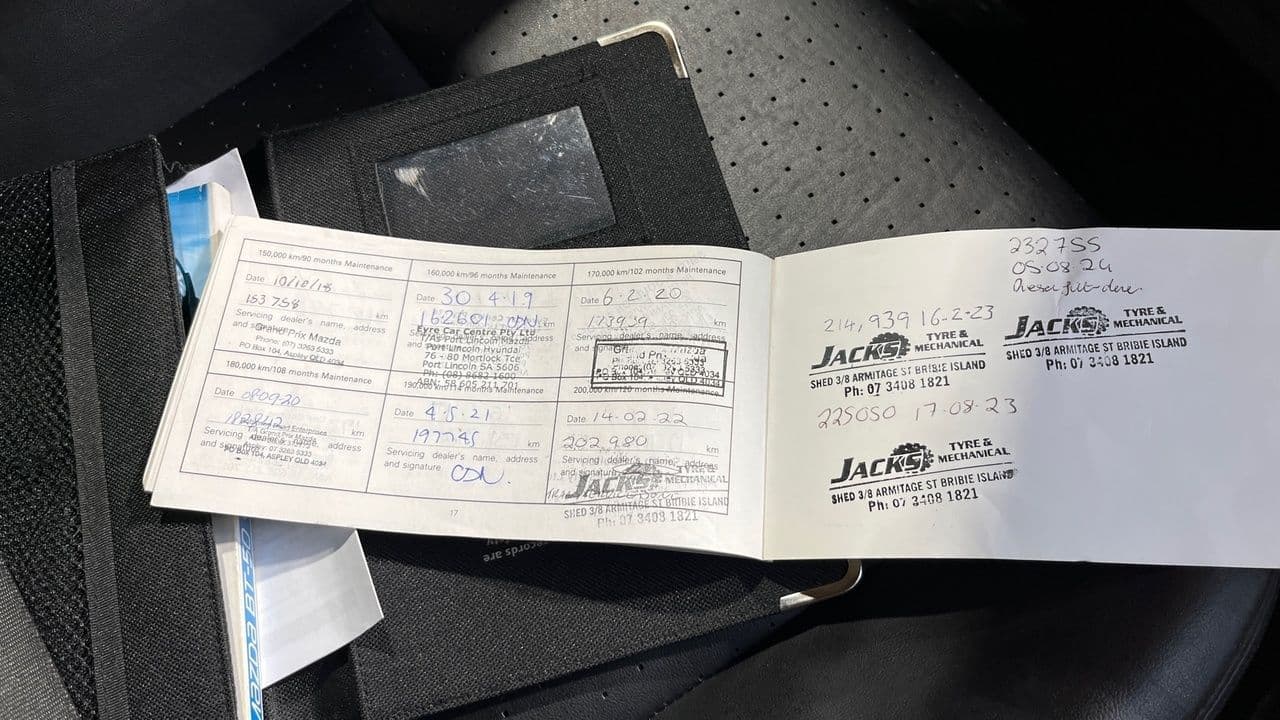 150,000 km/90 months Maintenance
Date 10/12/18
153 758
Servicing dealer's name, address
and signature
Grand Prix Mazda
Phone: (07) 3263 5333
PO Box 104, Aspley QLD 4034
160,000 km/96 months Maintenance
Date 30 4.19
162601 CDN. km
Eyre Car Centre Pty Ltd
T/As Port Lincoln Mazda
Port Lincoln Hyundai
76 - 80 Mortlock Tce
Port Lincoln SA 5606
Ph: (08) 8682 1600
ABN: 58 605 211 701
170,000 km/102 months Maintenance
Date 6.2.20
173939 km
Servicing dealer's name, address
and signature
PO Box 104 QLD 4034
180,000 km/108 months Maintenance
Date 080920
182842 km
Servicing address
and signature
PO Box 104, ASPLEY QLD 4034
190,000 km/114 months Maintenance
Date 4.5.21
197745 km
Servicing dealer's name, address
and signature.
CDN.
200,000 km/120 months Maintenance
Date 14-02-22
202,980 km
Servicing dealer's name, address
and signature
JACKS TYRE &
MECHANICAL
SHED 3/8 ARMITAGE ST BRIBIE ISLAND
Ph: 07 3408 1821
17
214,939 16-2-23
JACKS TYRE &
MECHANICAL
SHED 3/8 ARMITAGE ST BRIBIE ISLAND
Ph: 07 3408 1821
225050 17-08-23
JACKS TYRE &
MECHANICAL
SHED 3/8 ARMITAGE ST BRIBIE ISLAND
Ph: 07 3408 1821
232755
05.08.24
JACKS TYRE &
MECHANICAL
SHED 3/8 ARMITAGE ST BRIBIE ISLAND
Ph: 07 3408 1821
records are
MAZDA BT-50